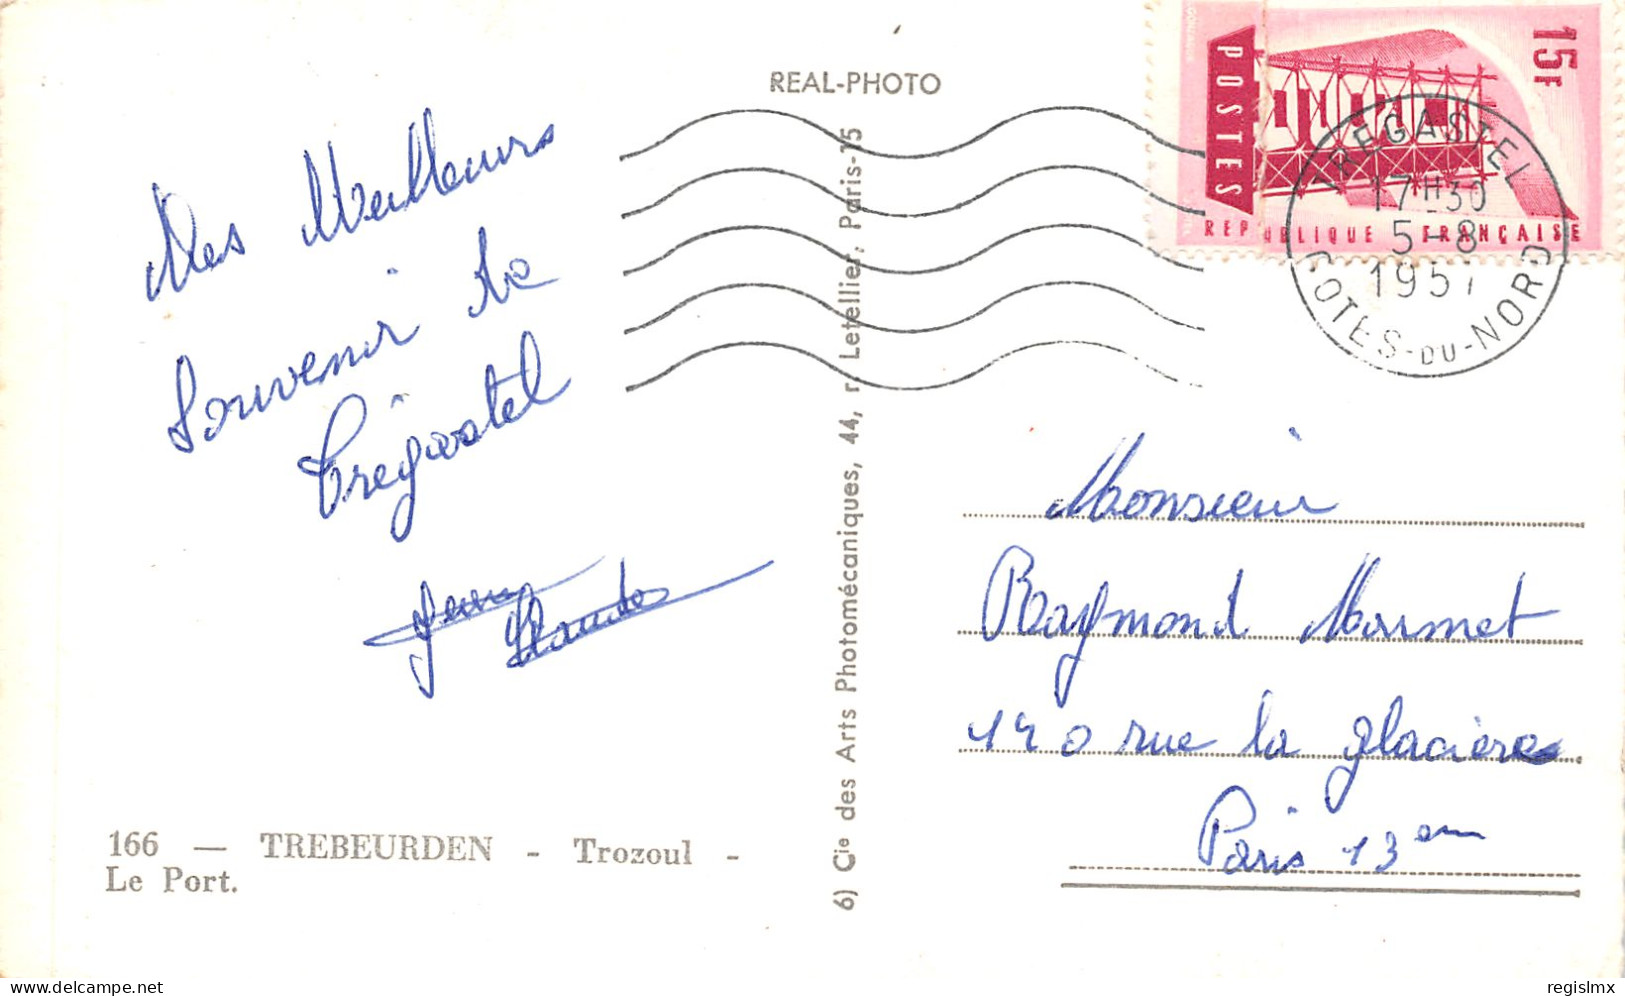 REAL-PHOTO
15F
POSTES
REPUBLIQUE FRANÇAISE
TREGASTEL
17H30
5-8
1957
COTES-DU-NORD
Mes Meilleurs
Souvenir de
Trégastel
Jean
Claude
Monsieur
Raymond Mormet
190 rue la glacière
Paris 13em
6) Cie des Arts Photomécaniques, 44, r. Letellier, Paris-15
166 — TREBEURDEN - Trozoul -
Le Port.
regislmx